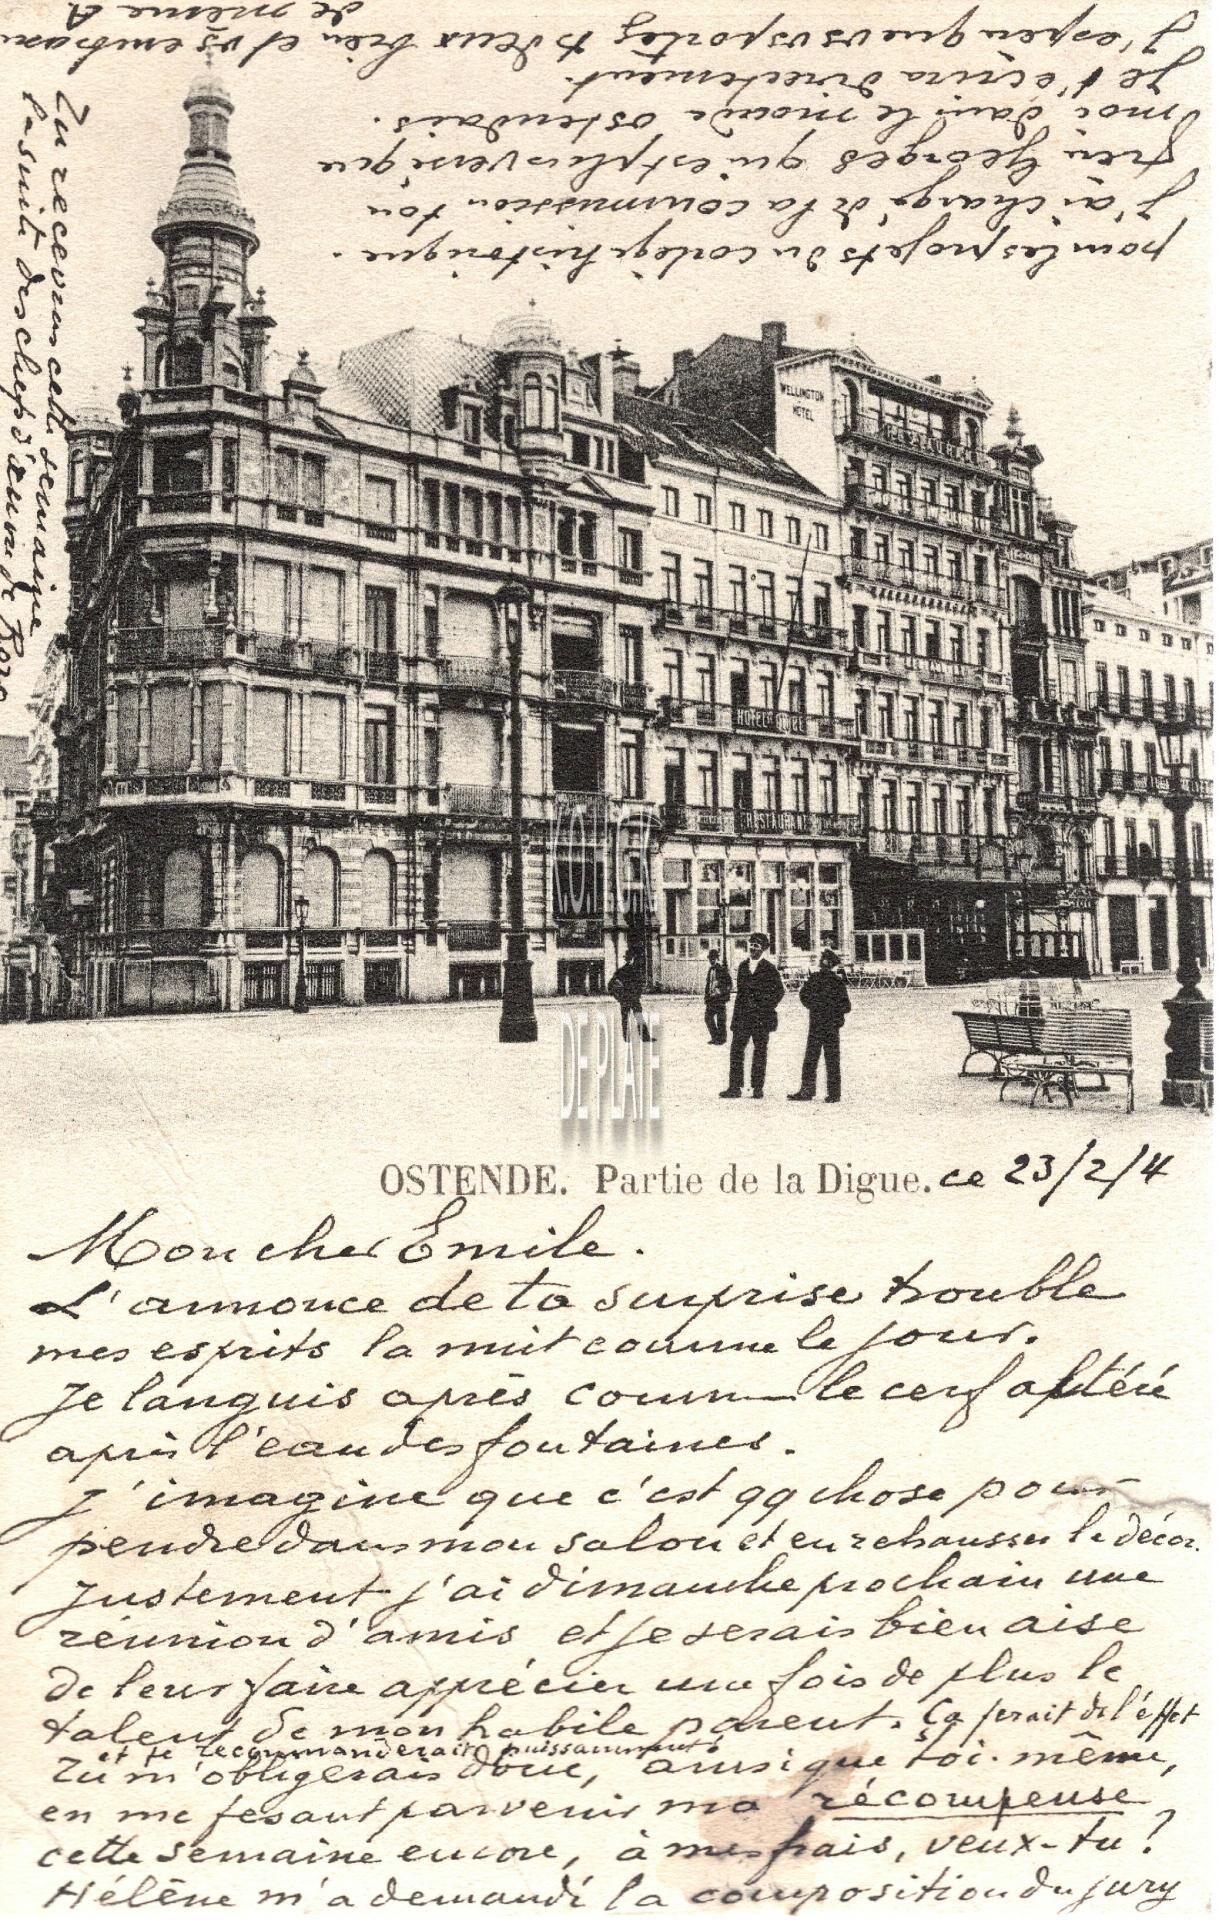 OSTENDE. Partie de la Digue. ce 23/2/4
Mon cher Emile.
L'annonce de ta surprise trouble
mes esprits la nuit comme le jour.
Je languis après comme le cerf altéré
après l'eau des fontaines.
J'imagine que c'est qq chose pour
pendre dans mon salon et en rehausser le décor.
Justement j'ai dimanche prochain une
réunion d'amis et je serais bien aise
de leur faire apprécier une fois de plus le
talent de mon habile parent. Ça ferait de l'effet
et te recommanderait puissamment.
Tu m'obligerais donc, ainsi que toi-même,
en me fesant parvenir ma récompense
cette semaine encore, à mes frais, veux-tu?
Hélène m'a demandé la composition du jury
pour les projets du cortège historique.
J'ai chargé de la commission ton
frère Georges qui est plus versé que
moi dans le monde ostendais.
Je t'écrira directement.
J'espère que vs vs portez ts deux bien et vs embrasse
de même A
Tu recevras cette semaine
la suite des chefs d'œuvre de
WELLINGTON
HOTEL
RESTAURANT
HOTEL
RESTAURANT
DE PLATE